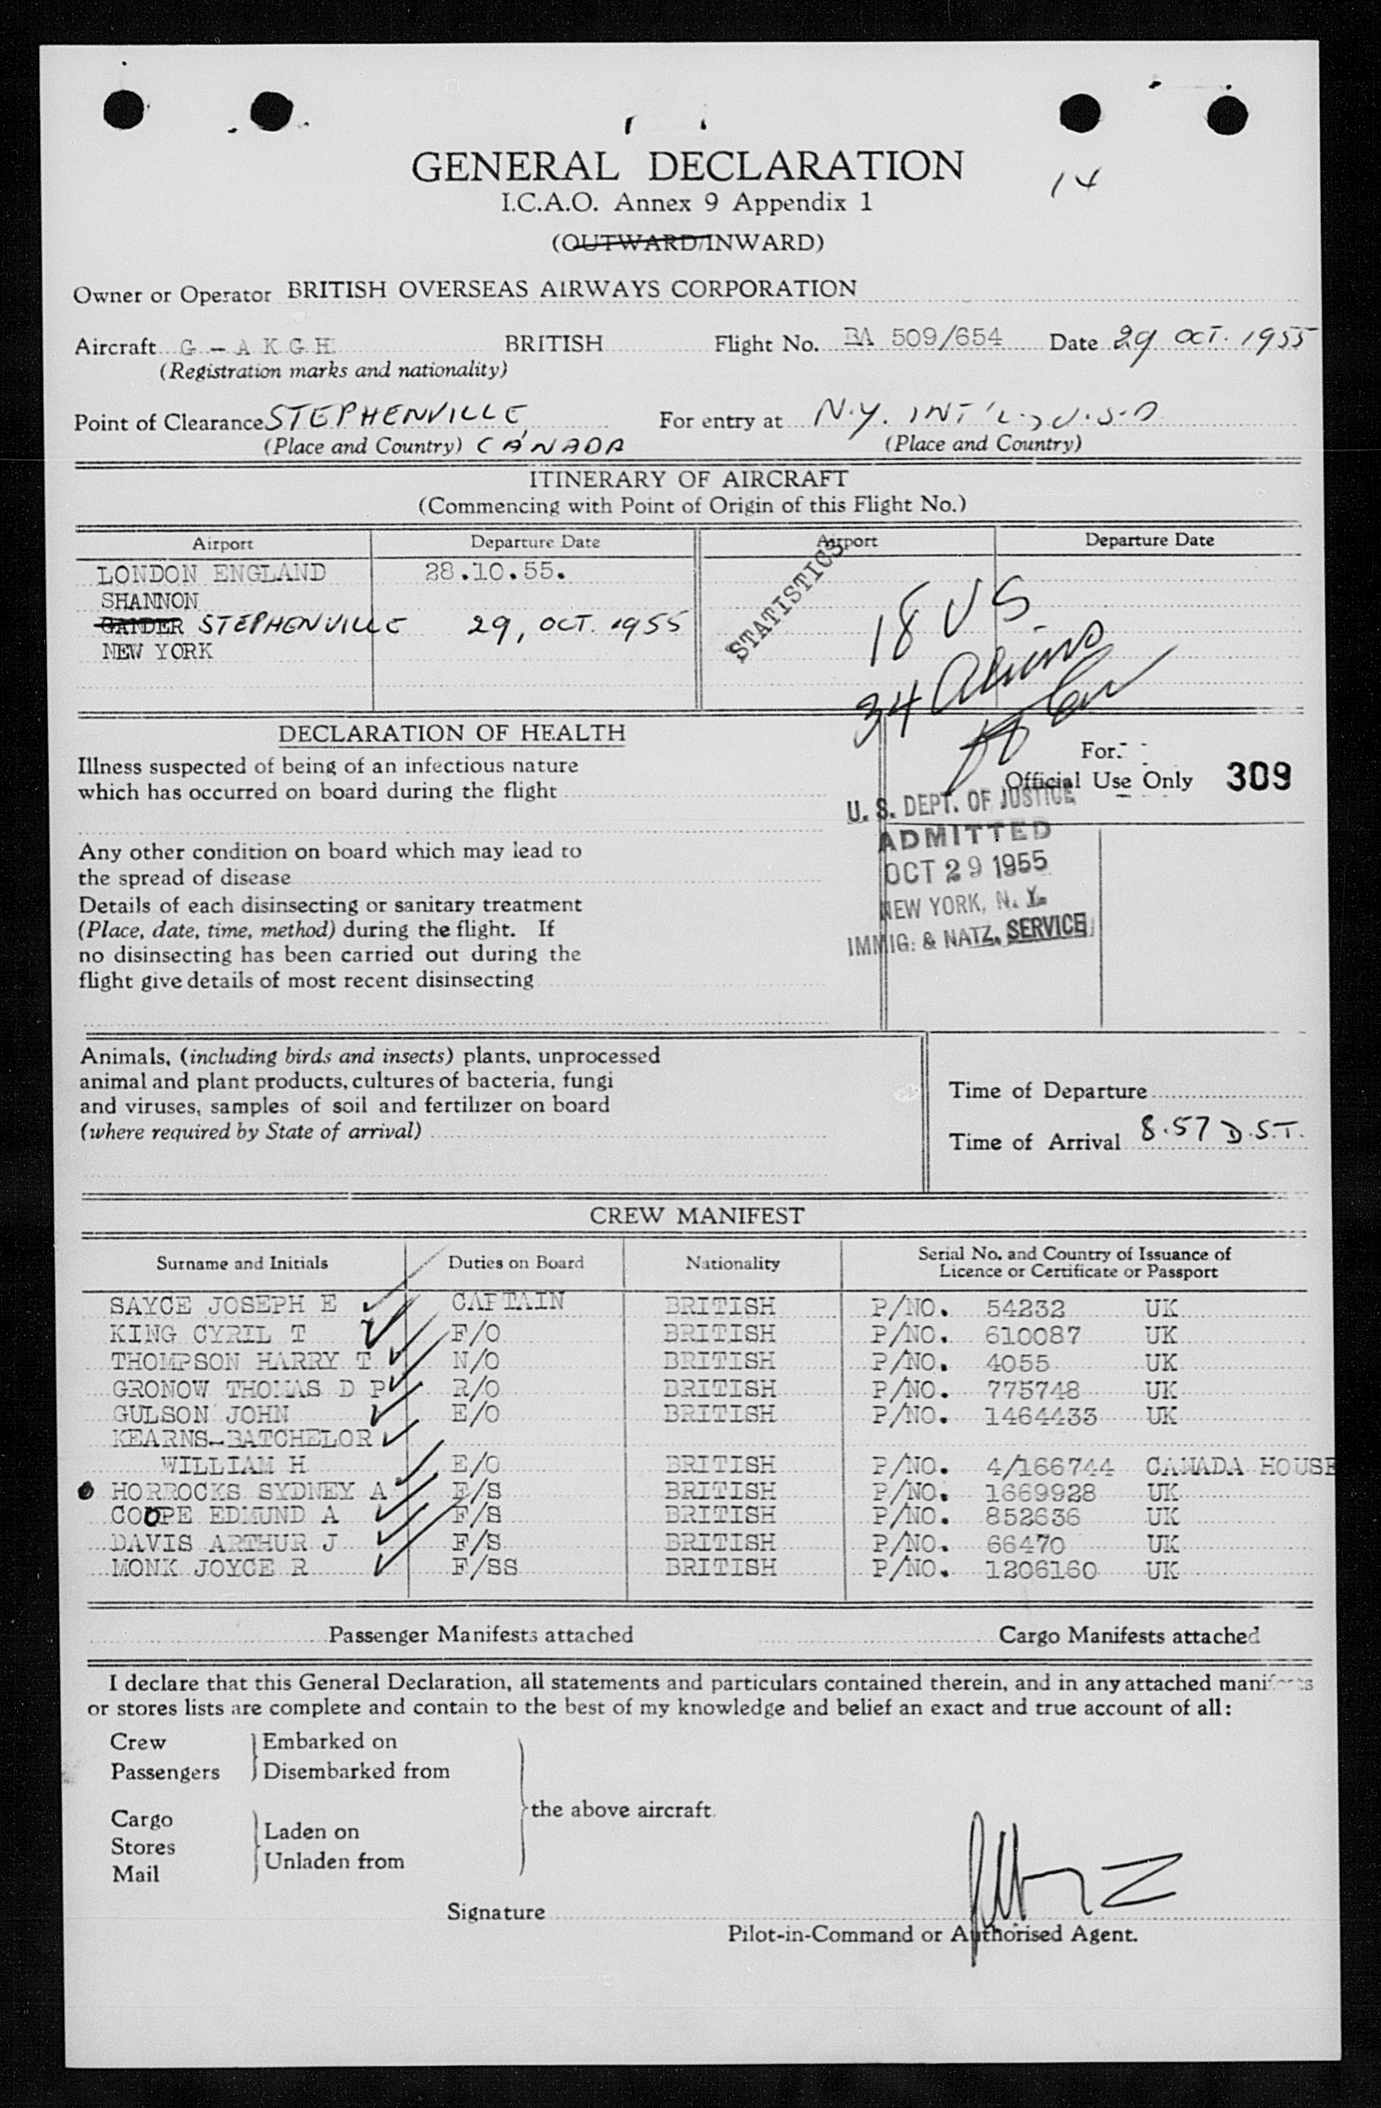 GENERAL DECLARATION
14
I.C.A.O. Annex 9 Appendix 1
(OUTWARD/INWARD)
Owner or Operator BRITISH OVERSEAS AIRWAYS CORPORATION
Aircraft G - A K G H BRITISH Flight No. BA 509/654 Date 29 OCT. 1955
(Registration marks and nationality)
Point of Clearance STEPHENVILLE, For entry at N.Y. INT'L, U.S.A
(Place and Country) CANADA (Place and Country)
ITINERARY OF AIRCRAFT
(Commencing with Point of Origin of this Flight No.)
Airport Departure Date Airport Departure Date
LONDON ENGLAND 28.10.55.
SHANNON
GANDER STEPHENVILLE 29, OCT. 1955
NEW YORK
STATISTICS
18 US
34 Aliens
DECLARATION OF HEALTH
Illness suspected of being of an infectious nature
which has occurred on board during the flight
For
Official Use Only 309
U. S. DEPT. OF JUSTICE
ADMITTED
OCT 29 1955
NEW YORK, N. Y.
IMMIG. & NATZ. SERVICE
Any other condition on board which may lead to
the spread of disease
Details of each disinsecting or sanitary treatment
(Place, date, time, method) during the flight. If
no disinsecting has been carried out during the
flight give details of most recent disinsecting
Animals, (including birds and insects) plants, unprocessed
animal and plant products, cultures of bacteria, fungi
and viruses, samples of soil and fertilizer on board
(where required by State of arrival)
Time of Departure
Time of Arrival 8.57 D.S.T.
CREW MANIFEST
Surname and Initials Duties on Board Nationality Serial No. and Country of Issuance of
Licence or Certificate or Passport
SAYCE JOSEPH E CAPTAIN BRITISH P/NO. 54232 UK
KING CYRIL T F/O BRITISH P/NO. 610087 UK
THOMPSON HARRY T N/O BRITISH P/NO. 4055 UK
GRONOW THOMAS D P R/O BRITISH P/NO. 775748 UK
GULSON JOHN E/O BRITISH P/NO. 1464433 UK
KEARNS-BATCHELOR
WILLIAM H E/O BRITISH P/NO. 4/166744 CANADA HOUSE
HORROCKS SYDNEY A F/S BRITISH P/NO. 1669928 UK
COOPE EDMUND A F/S BRITISH P/NO. 852636 UK
DAVIS ARTHUR J F/S BRITISH P/NO. 66470 UK
MONK JOYCE R F/SS BRITISH P/NO. 1206160 UK
Passenger Manifests attached Cargo Manifests attached
I declare that this General Declaration, all statements and particulars contained therein, and in any attached manifests
or stores lists are complete and contain to the best of my knowledge and belief an exact and true account of all:
Crew Embarked on
Passengers Disembarked from
the above aircraft.
Cargo
Stores Laden on
Mail Unladen from
Signature
Pilot-in-Command or Authorised Agent.